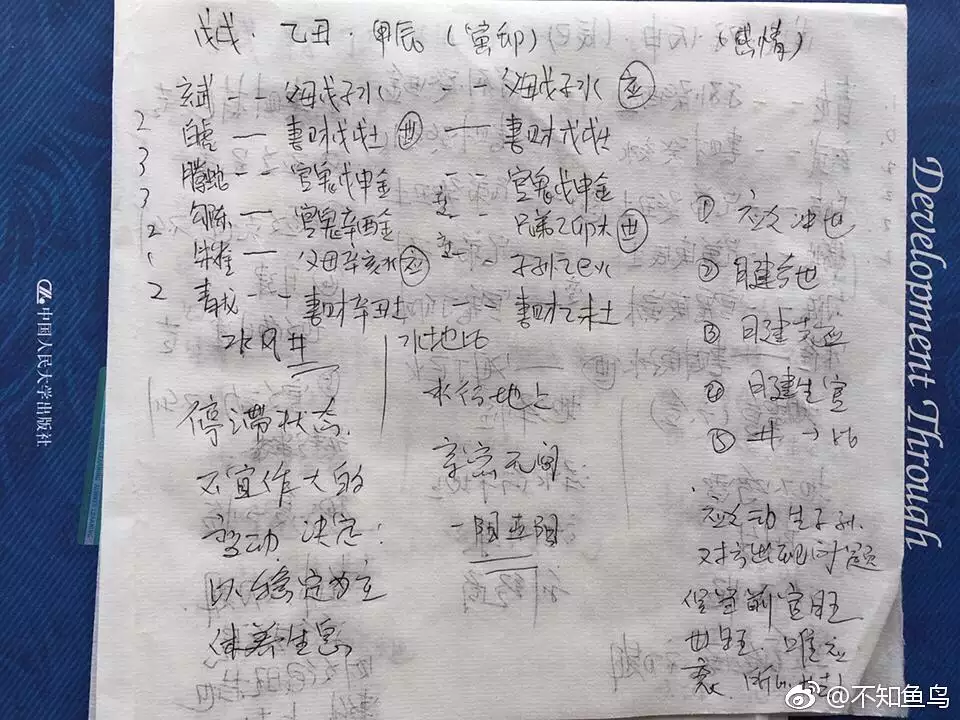 戊戌·乙丑·甲辰(寅卯) (感情)
玄武 -- 父母戊子水 -- 父母戊子水 应
2 白虎 — 妻财戊戌土 世 — 妻财戊戌土
3 腾蛇 -- 官鬼戊申金 -- 官鬼戊申金
3 勾陈 — 官鬼辛酉金 -- 兄弟乙卯木 世
2 朱雀 — 父母辛亥水 应 -- 子孙乙巳火
2 青龙 -- 妻财辛丑土 妻财乙未土
水风井 水地比
停滞状态
不宜作大的
变动 决定:
以稳定为主
休养生息
水行地上
亲密无间
一阳五阴
① 应爻冲世
② 日建合世
③ 日建克应
④ 日建生官
⑤ 井→比
应爻动生子孙
对方出现问题
但当前官旺
世旺 唯应
衰
中国人民大学出版社
Development Through
@不知鱼鸟